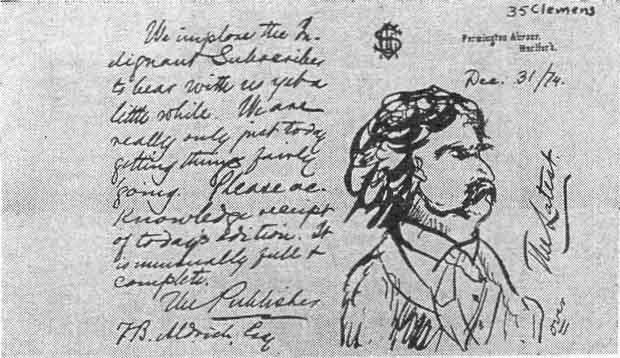 35 Clemens
Farmington Avenue,
Hartford.
Dec. 31/74.
We implore the In-
dignant Subscriber
to bear with us yet a
little while. We are
really only just today
getting things fairly
going. Please ac-
knowledge receipt
of today's edition. It
is unusually full &
complete.
The Publisher
T. B. Aldrich, Esq
The Latest
over